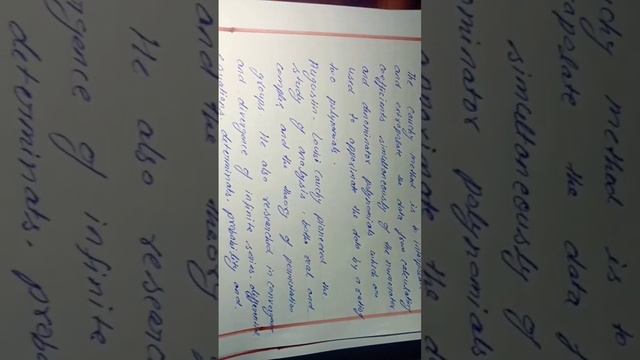 The Cauchy method is to interpolate
and extrapolate the data from calculating
coefficients simultaneously of the numerator
and denominator polynomials which are
used to approximate the data by a ratio of
two polynomials.
Augustin Louis Cauchy pioneered the
study of analysis, both real and
complex, and the theory of permutation
groups. He also researched in convergence
and divergence of infinite series, differential
equations, determinants, probability and